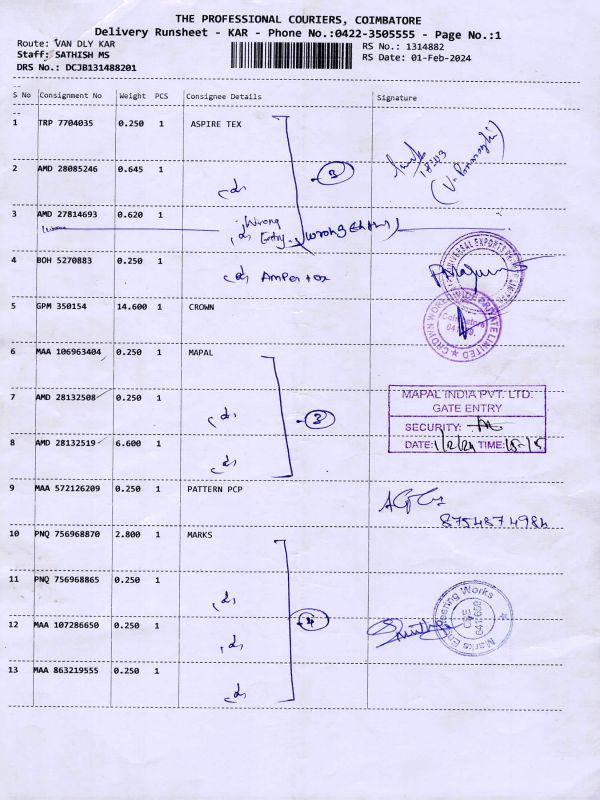 THE PROFESSIONAL COURIERS, COIMBATORE
Delivery Runsheet - KAR - Phone No.:0422-3505555 - Page No.:1
Route: VAN DLY KAR
RS No.: 1314882
Staff: SATHISH MS
RS Date: 01-Feb-2024
DRS No.: DCJB131488201
S No Consignment No Weight PCS Consignee Details Signature
1 TRP 7704035 0.250 1 ASPIRE TEX
2 AMD 28085246 0.645 1
3
3 AMD 27814693 0.620 1 Wrong Entry (Wrong Entry)
4 BOH 5270883 0.250 1
UNIVERSAL EXPORTS
5 GPM 350154 14.600 1 CROWN
CROWN WORLDWIDE PRIVATE LIMITED
Coimbatore
6 MAA 106963404 0.250 1 MAPAL
7 AMD 28132508 0.250 1
MAPAL INDIA PVT. LTD.
GATE ENTRY
3
SECURITY:
8 AMD 28132519 6.600 1
DATE: 1/2/24 TIME: 15-15
9 MAA 572126209 0.250 1 PATTERN PCP
8754874984
10 PNQ 756968870 2.800 1 MARKS
11 PNQ 756968865 0.250 1
Marks Engineering Works
4
12 MAA 107286650 0.250 1
13 MAA 863219555 0.250 1